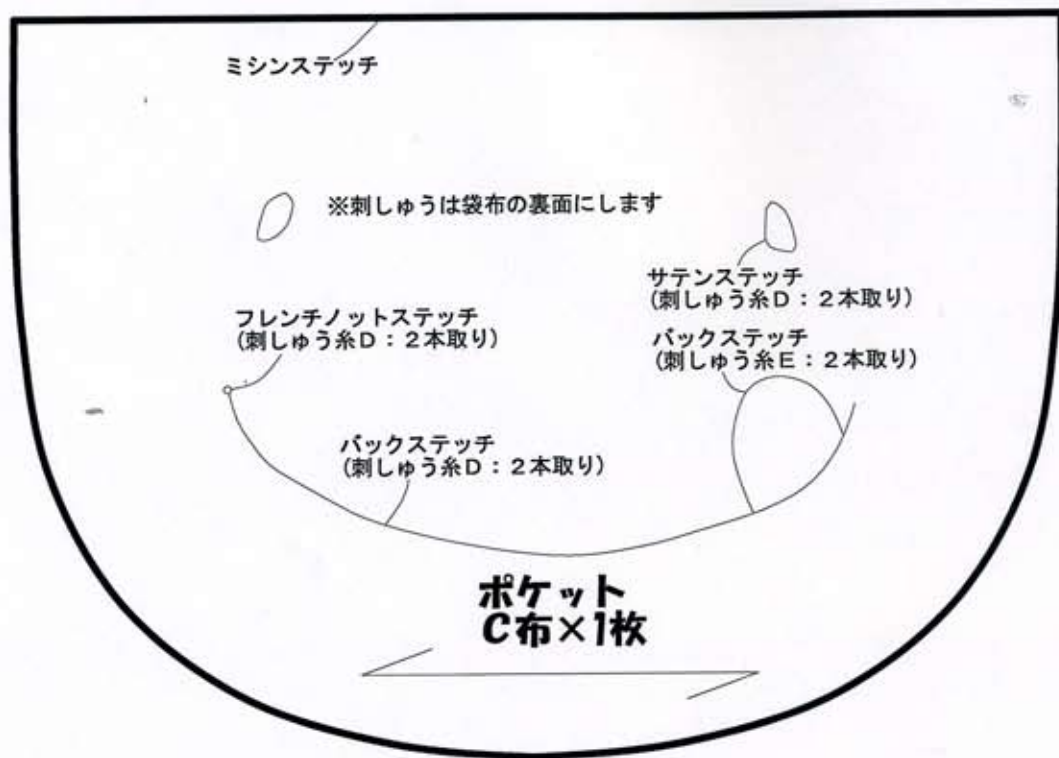 ミシンステッチ
※刺しゅうは袋布の裏面にします
サテンステッチ
(刺しゅう糸D：２本取り)
フレンチノットステッチ
(刺しゅう糸D：２本取り)
バックステッチ
(刺しゅう糸E：２本取り)
バックステッチ
(刺しゅう糸D：２本取り)
ポケット
C布×1枚